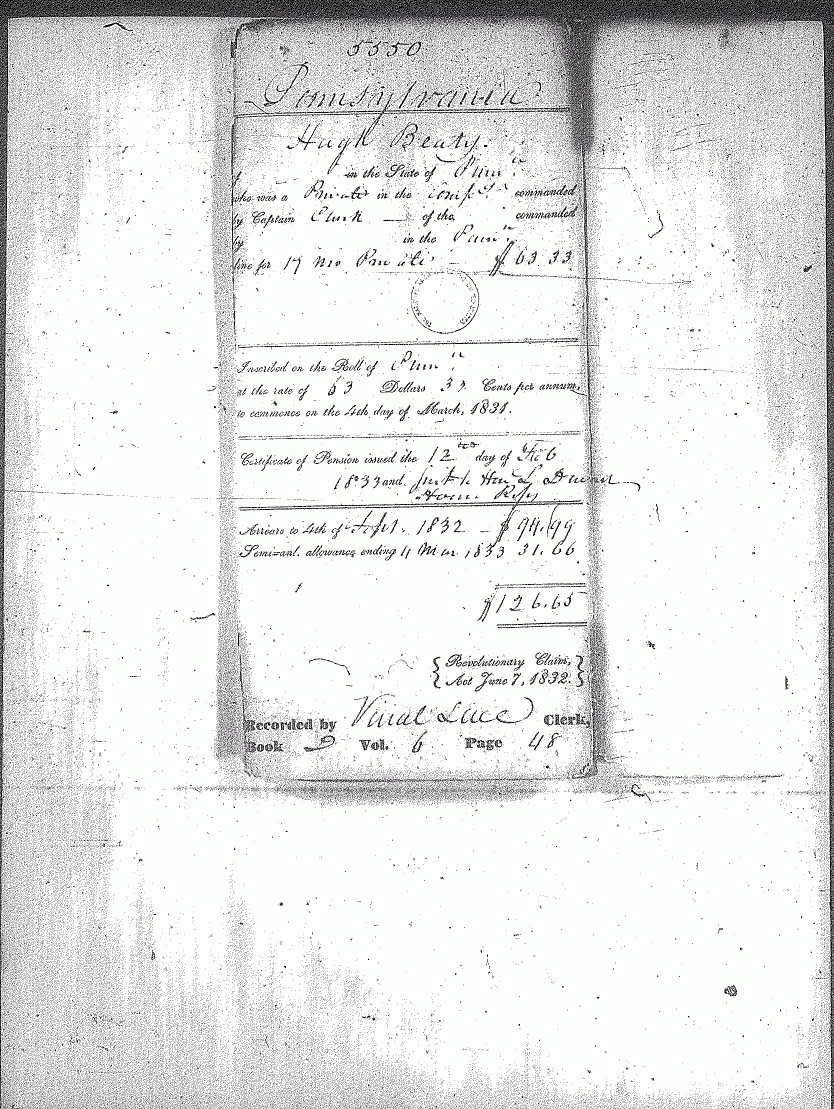 5550
Pennsylvania
Hugh Beaty.
in the State of Penn.ia
who was a Private in the comp.y commanded
by Captain Clark — of the commanded
by in the Penn.ia
line for 19 mo Private — $63.33
Inscribed on the Roll of Penn.ia
at the rate of 63 Dollars 33 Cents per annum,
to commence on the 4th day of March, 1831.
Certificate of Pension issued the 12th day of Feb
1833 and sent to Hon.
House Reps
Arrears to 4th of Sept. 1832 — $94.99
Semi-anl. allowance ending 4 Mar 1833 31.66
$126.65
Revolutionary Claim,
Act June 7, 1832.
Recorded by Clerk,
Book D Vol. 6 Page 48